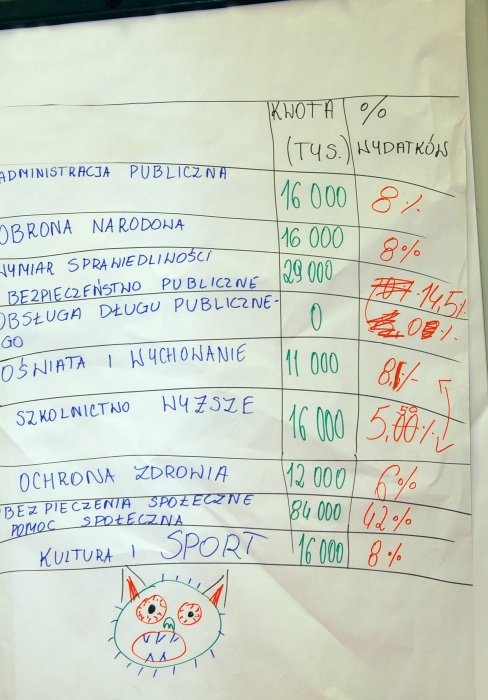 KWOTA %
(TYS.) WYDATKÓW
ADMINISTRACJA PUBLICZNA 16 000 8%
OBRONA NARODOWA 16 000 8%
WYMIAR SPRAWIEDLIWOŚCI 29 000 14,5%
BEZPIECZEŃSTWO PUBLICZNE
OBSŁUGA DŁUGU PUBLICZNE- 0 0%
GO
OŚWIATA I WYCHOWANIE 11 000 8%
SZKOLNICTWO WYŻSZE 16 000 5,50%
OCHRONA ZDROWIA 12 000 6%
BEZPIECZENIA SPOŁECZNE 84 000 42%
POMOC SPOŁECZNA
KULTURA I SPORT 16 000 8%